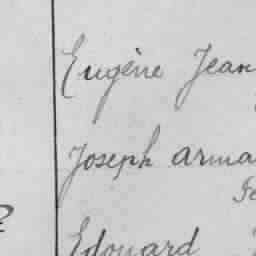 Eugène Jean
Joseph arma
Edouard